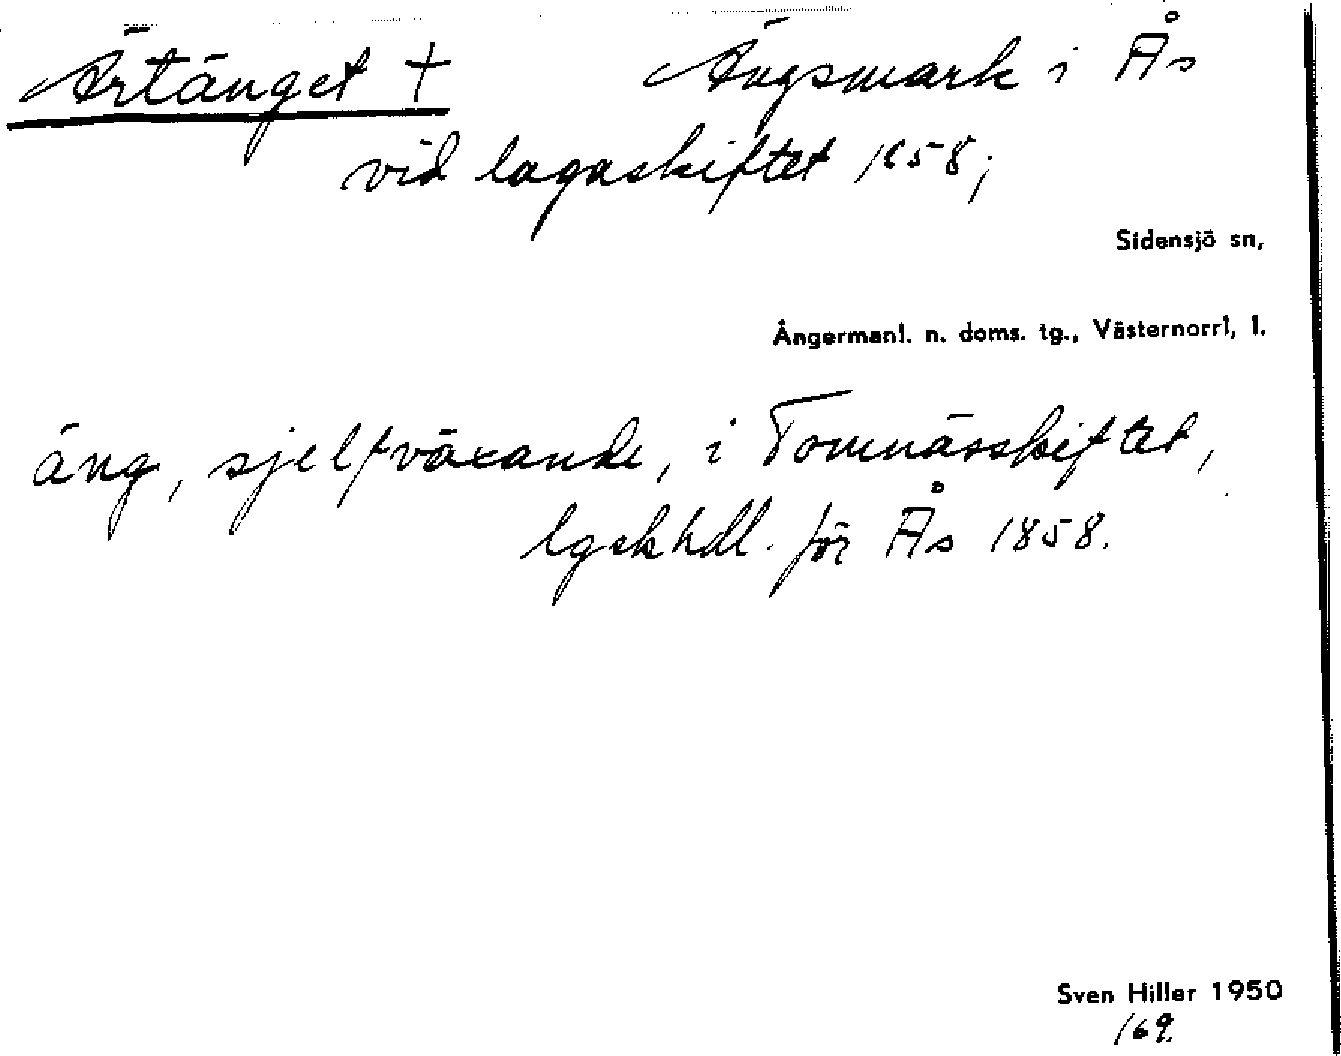 Ärtänget + Ängsmark i Ås
vid lagaskiftet 1858;
Sidensjö sn,
Ångermanl. n. doms. tg., Västernorrl. l.
äng, sjelfväxande, i Tomnässkiftet,
lgskhdl. för Ås 1858.
Sven Hiller 1950
169.